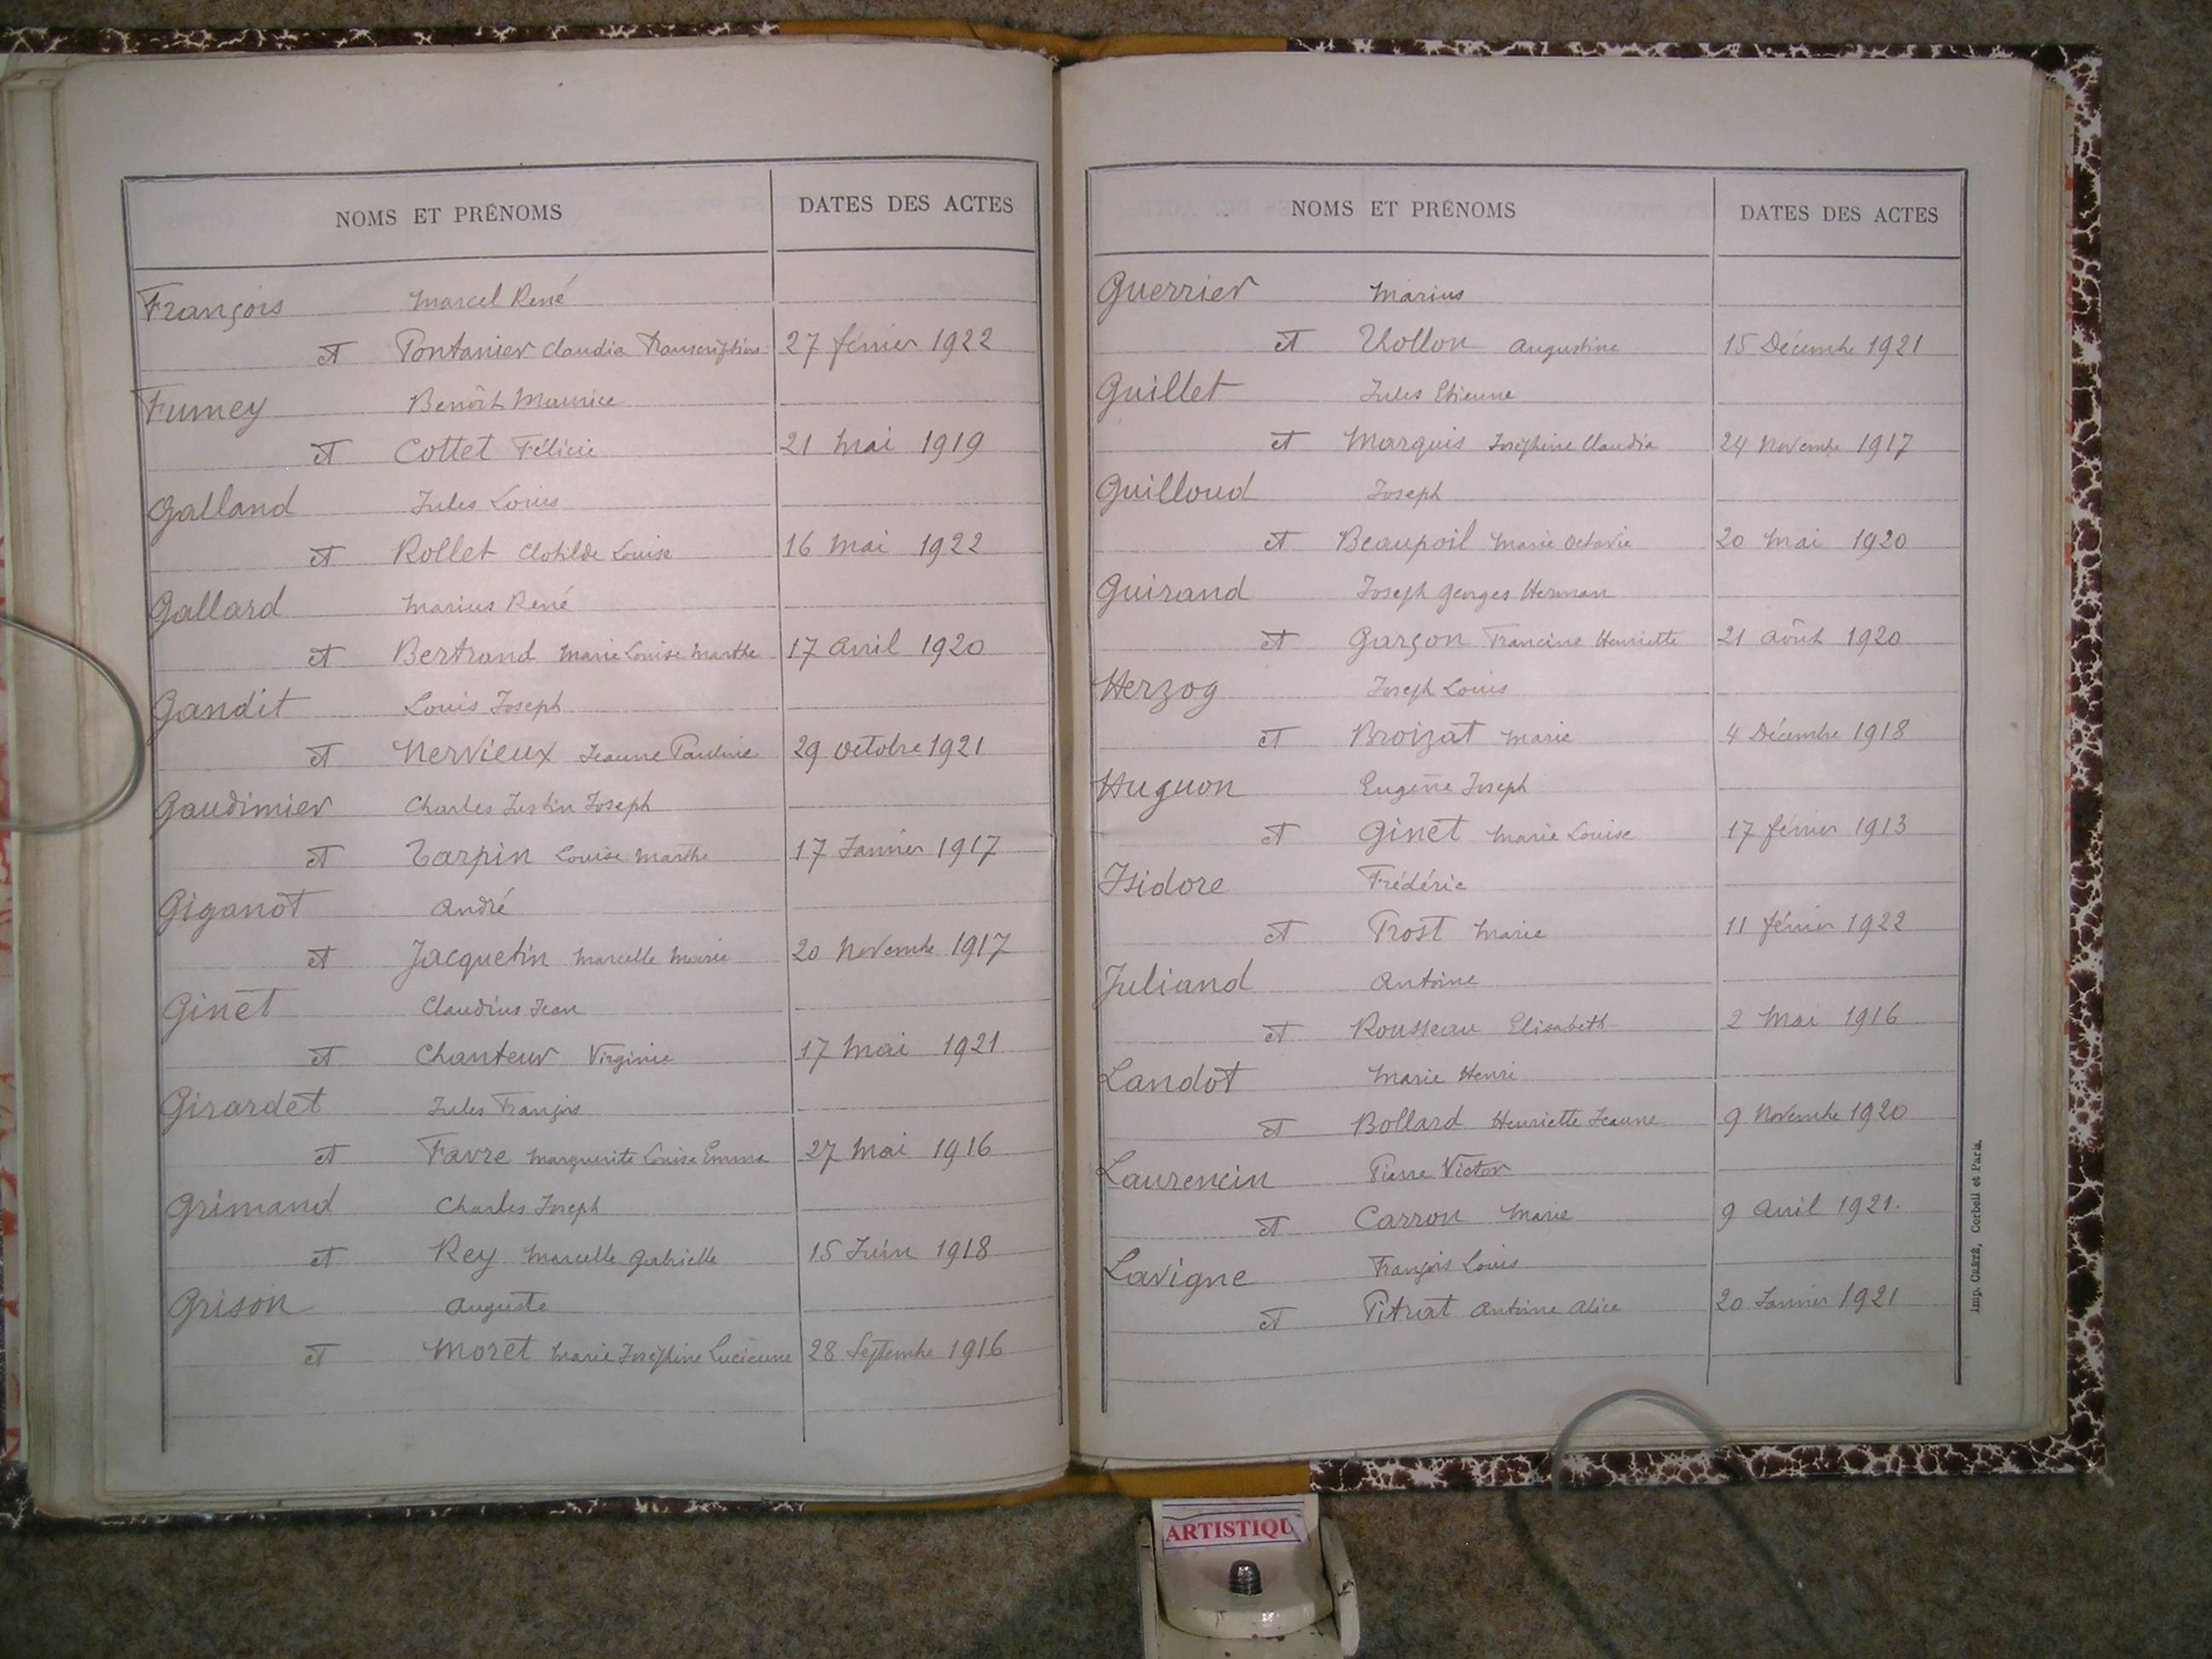 NOMS ET PRÉNOMS DATES DES ACTES
François Marcel René
et Pontanier Claudia Transcription 27 février 1922
Fumey Benôit Maurice
et Cottet Félicie 21 Mai 1919
Galland Jules Louis
et Rollet Clotilde Louise 16 Mai 1922
Gallard Marius René
et Bertrand Marie Louise Marthe 17 Avril 1920
Gandit Louis Joseph
et Nervieux Jeanne Pauline 29 Octobre 1921
Gaudimier Charles Justin Joseph
et Tarpin Louise Marthe 17 Janvier 1917
Giganot André
et Jacquetin Marcelle Marie 20 Novembre 1917
Ginet Claudius Jean
et Chanteur Virginie 17 Mai 1921
Girardet Jules François
et Favre Marguerite Louise Emma 27 Mai 1916
Grimand Charles Joseph
et Rey Marcelle Gabrielle 15 Juin 1918
Grison Auguste
et Moret Marie Joséphine Lucienne 28 Septembre 1916
NOMS ET PRÉNOMS DATES DES ACTES
Guerrier Marius
et Thollon Augustine 15 Décembre 1921
Guillet Jules Etienne
et Marquis Joséphine Claudia 24 Novembre 1917
Guilloud Joseph
et Beaupoil Marie Octavie 20 Mai 1920
Guirand Joseph Georges Herman
et Garçon Francine Henriette 21 Août 1920
Herzog Joseph Louis
et Broizat Marie 4 Décembre 1918
Huguon Eugène Joseph
et Ginet Marie Louise 17 février 1913
Isidore Frédéric
et Prost Marie 11 février 1922
Juliand Antoine
et Rousseau Elisabeth 2 Mai 1916
Landot Marie Henri
et Bollard Henriette Jeanne 9 Novembre 1920
Laurencin Pierre Victor
et Carron Marie 9 Avril 1921.
Lavigne François Louis
et Pitrat Antoine Alice 20 Janvier 1921
Imp. CRÉTÉ, Corbeil et Paris.
ARTISTIQU